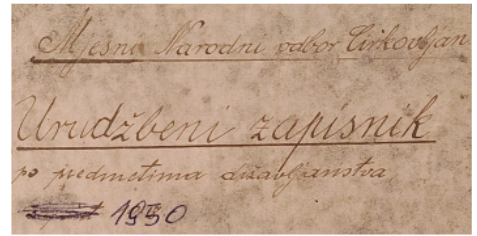 Mjesni Narodni odbor Cirkovljan
Urudžbeni zapisnik
po predmetima državljanstva
1950